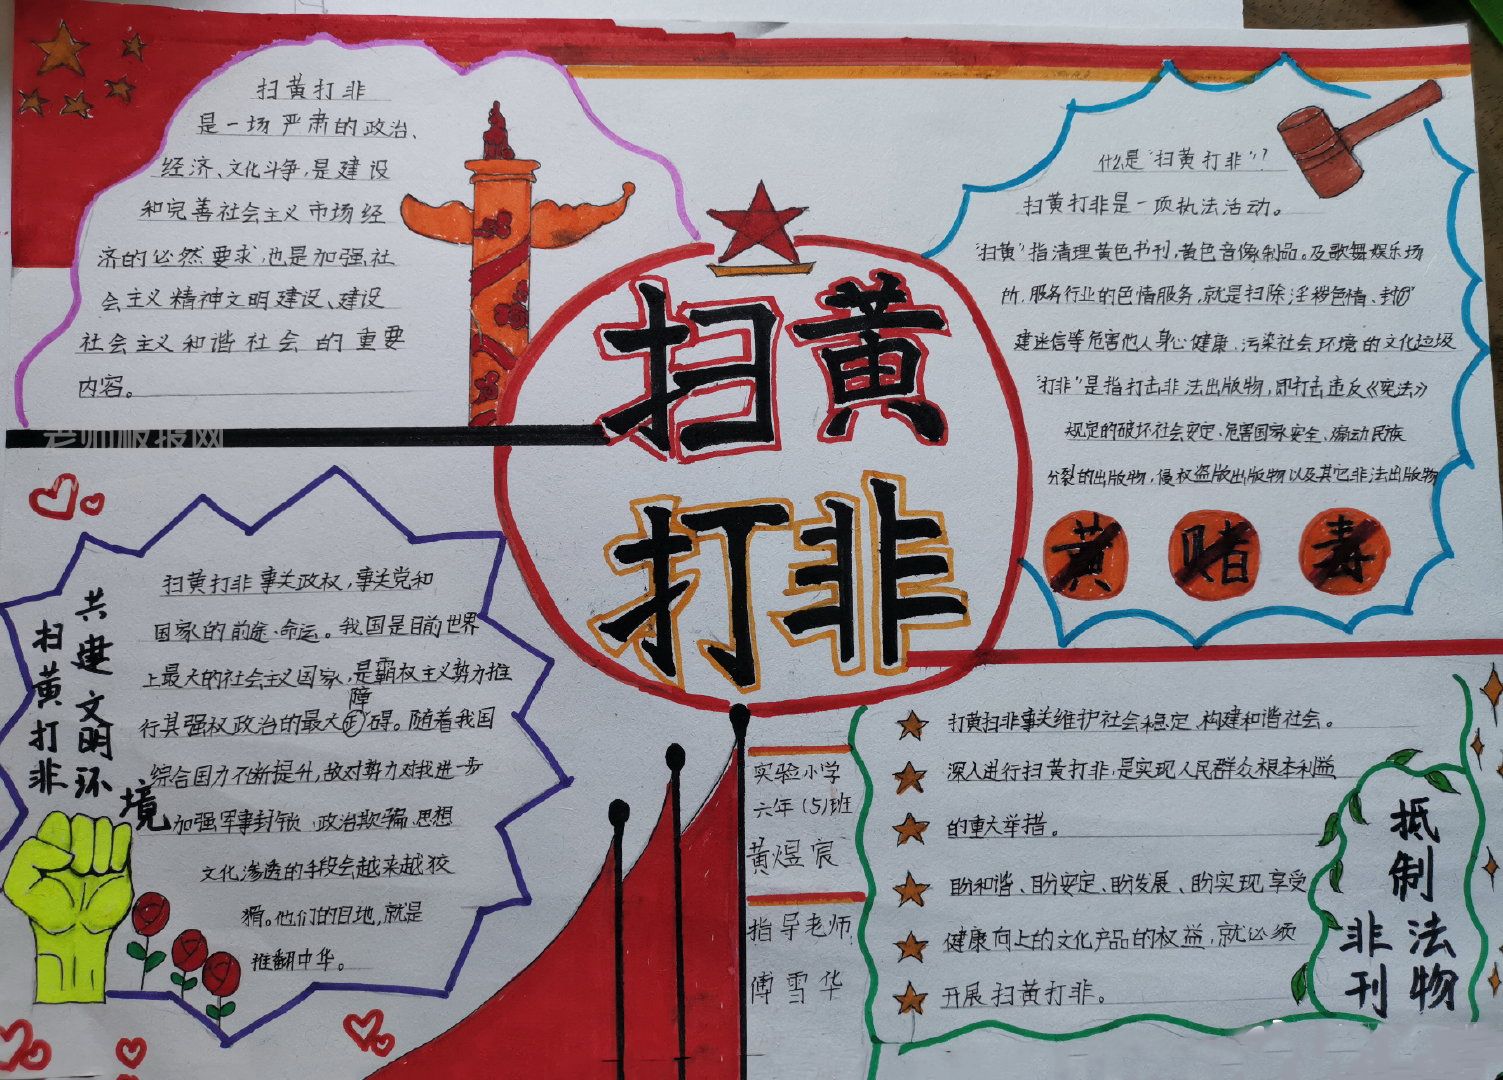 扫黄打非
是一场严肃的政治、
经济、文化斗争,是建设
和完善社会主义市场经
济的必然要求,也是加强社
会主义精神文明建设、建设
社会主义和谐社会的重要
内容。
老师板报网
扫黄
打非
什么是“扫黄打非”?
扫黄打非是一项执法活动。
“扫黄”指清理黄色书刊,黄色音像制品。及歌舞娱乐场
所,服务行业的色情服务,就是扫除淫秽色情、封
建迷信等危害他人身心健康、污染社会环境的文化垃圾
“打非”是指打击非法出版物,即打击违反《宪法》
规定的破坏社会安定、危害国家安全、煽动民族
分裂的出版物,侵权盗版出版物以及其它非法出版物
黄 赌 毒
共建文明环境
扫黄打非
扫黄打非事关政权,事关党和
国家的前途、命运。我国是目前世界
上最大的社会主义国家,是霸权主义势力推
行其强权政治的最大障碍。随着我国
综合国力不断提升,敌对势力对我进一步
加强军事封锁、政治欺骗、思想
文化渗透的手段会越来越狡
猾。他们的目地,就是
推翻中华。
实验小学
六年(5)班
黄煜宸
指导老师
傅雪华
打黄扫非事关维护社会稳定、构建和谐社会。
深入进行扫黄打非,是实现人民群众根本利益
的重大举措。
盼和谐、盼安定、盼发展、盼实现享受
健康向上的文化产品的权益,就必须
开展扫黄打非。
抵制法物
非刊